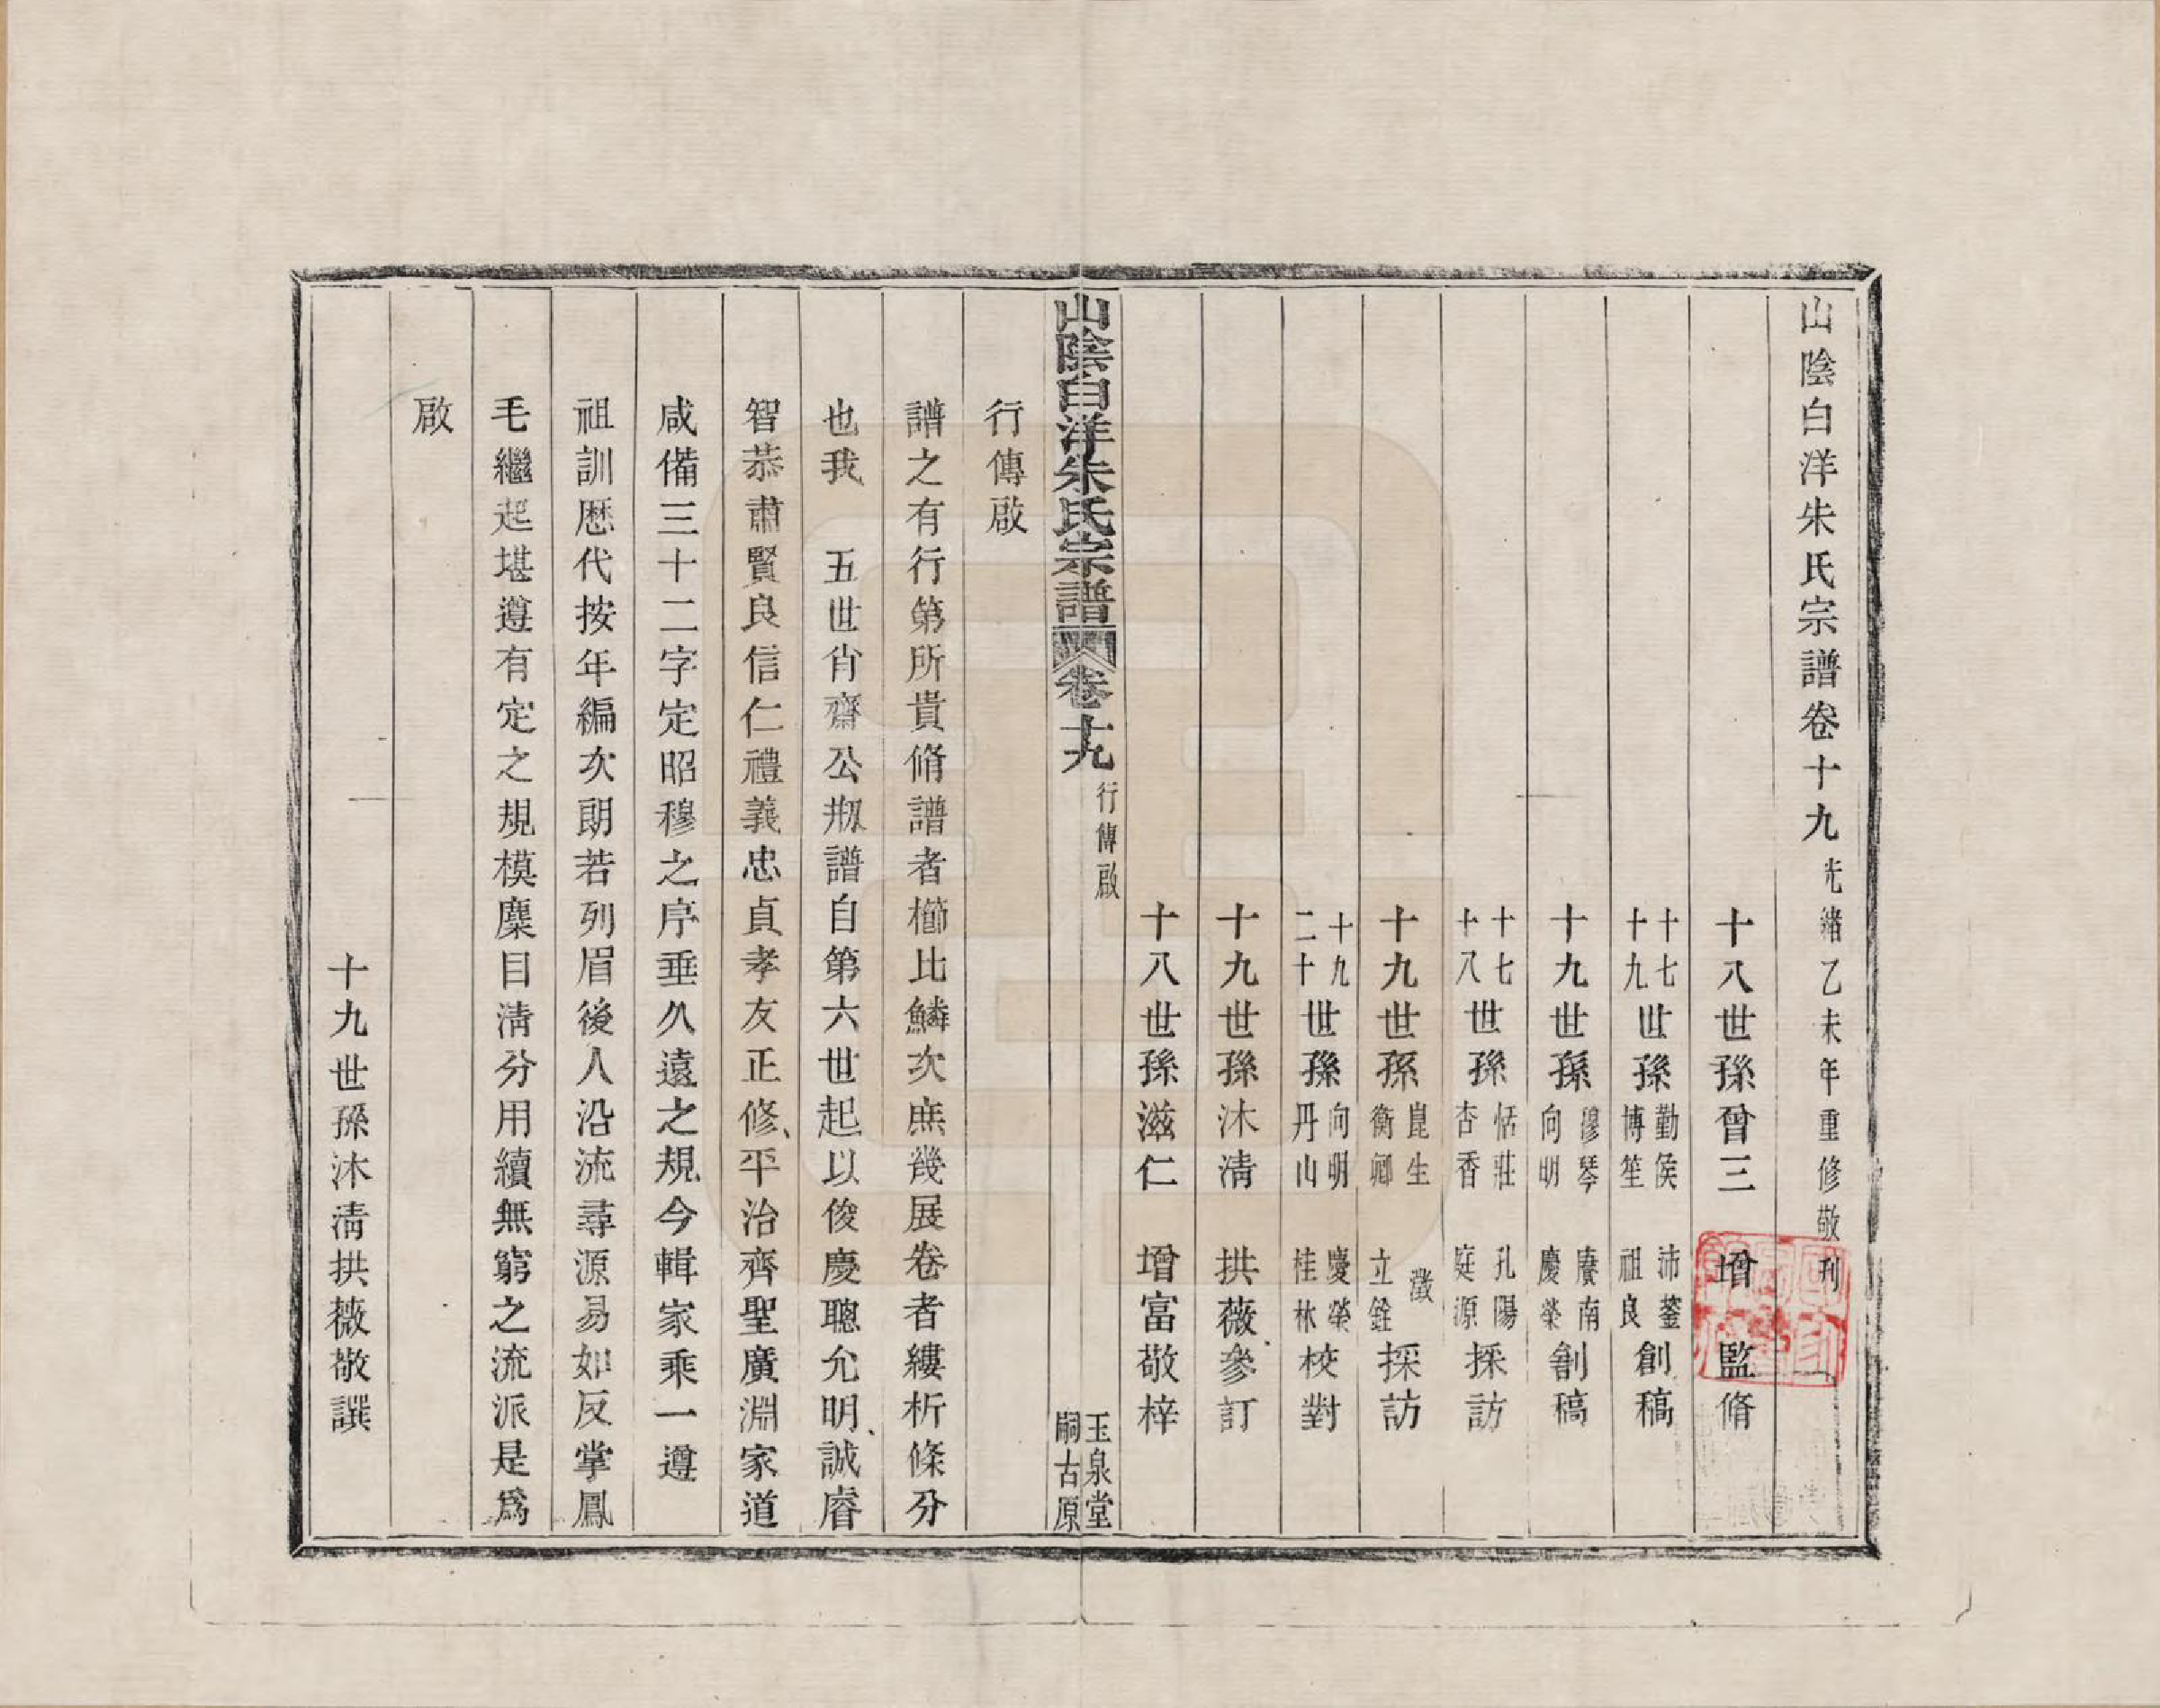 山陰白洋朱氏宗譜卷十九 光緒乙未年重修敬刊
十八世孫曾三 增 監脩
十七十九世孫勤侯博笙 沛鋆祖良創稿
十九世孫繆琴向明 賡南慶榮創稿
十七十八世孫恬莊杏香 孔陽庭源採訪
十九世孫崑生衡卿 瀓立銓採訪
十九二十世孫向明丹山 慶榮桂林校對
十九世孫沐清 拱薇參訂
十八世孫滋仁 增富敬梓
山陰白洋朱氏宗譜 卷十九 行傳啟 玉泉堂 嗣古原
行傳啟
譜之有行第所貴脩譜者櫛比鱗次庶幾展卷者縷析條分
也我 五世肖齋公刱譜自第六世起以俊慶聰允明誠睿
智恭肅賢良信仁禮義忠貞孝友正修平治齊聖廣淵家道
咸備三十二字定昭穆之序垂久遠之規今輯家乘一遵
祖訓歷代按年編次朗若列眉後人沿流尋源易如反掌鳳
毛繼起堪遵有定之規模麋目清分用續無窮之流派是為
啟
十九世孫沐清拱薇敬譔